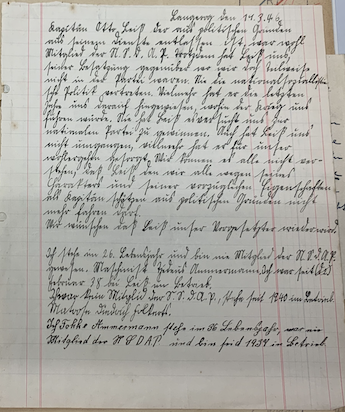 Langeoog den 11.8.46
Kapitän Otto Leiß der aus politischen Gründen
aus seinem Dienste entlassen ist, war wohl
Mitglied der N.S.D.A.P. trotzdem hat Leiß uns,
seiner Besatzung gegenüber wo wir doch teilweise
nicht in der Partei waren. Nie die nationalsozialisti-
sche Politik vertreten. Vielmehr hat er die letzten
Jahre uns darauf hingewiesen, wohin der Krieg uns
führen würde. Nie hat Leiß versucht uns für
nationalen Partei zu gewinnen. Auch hat Leiß uns
nicht umgangen, vielmehr hat er für unser
wohlergehn gesorgt. Wir können es alle nicht ver-
stehen, daß Leiß den wir alle wegen seines
Charakters und seiner vorzüglichen Eigenschaften
als Kapitän schätzen aus politischen Gründen nicht
mehr fahren darf.
Wir wünschen daß Leiß unser Vorgesetzter wieder wird
Ich stehe im 26. Lebensjahr und bin nie Mitglied der N.S.D.A.P.
gewesen. Maschinist Ammermann, war seit
Februar 38 bei Leiß im Betrieb.
war kein Mitglied der N.S.D.A.P., stehe seit 1940 im Betrieb.
Matrose Diedrich
Ich Fokko Ammermann stehe im Lebensjahr, war nie
Mitglied der NSDAP und bin seit 1937 im Betrieb.